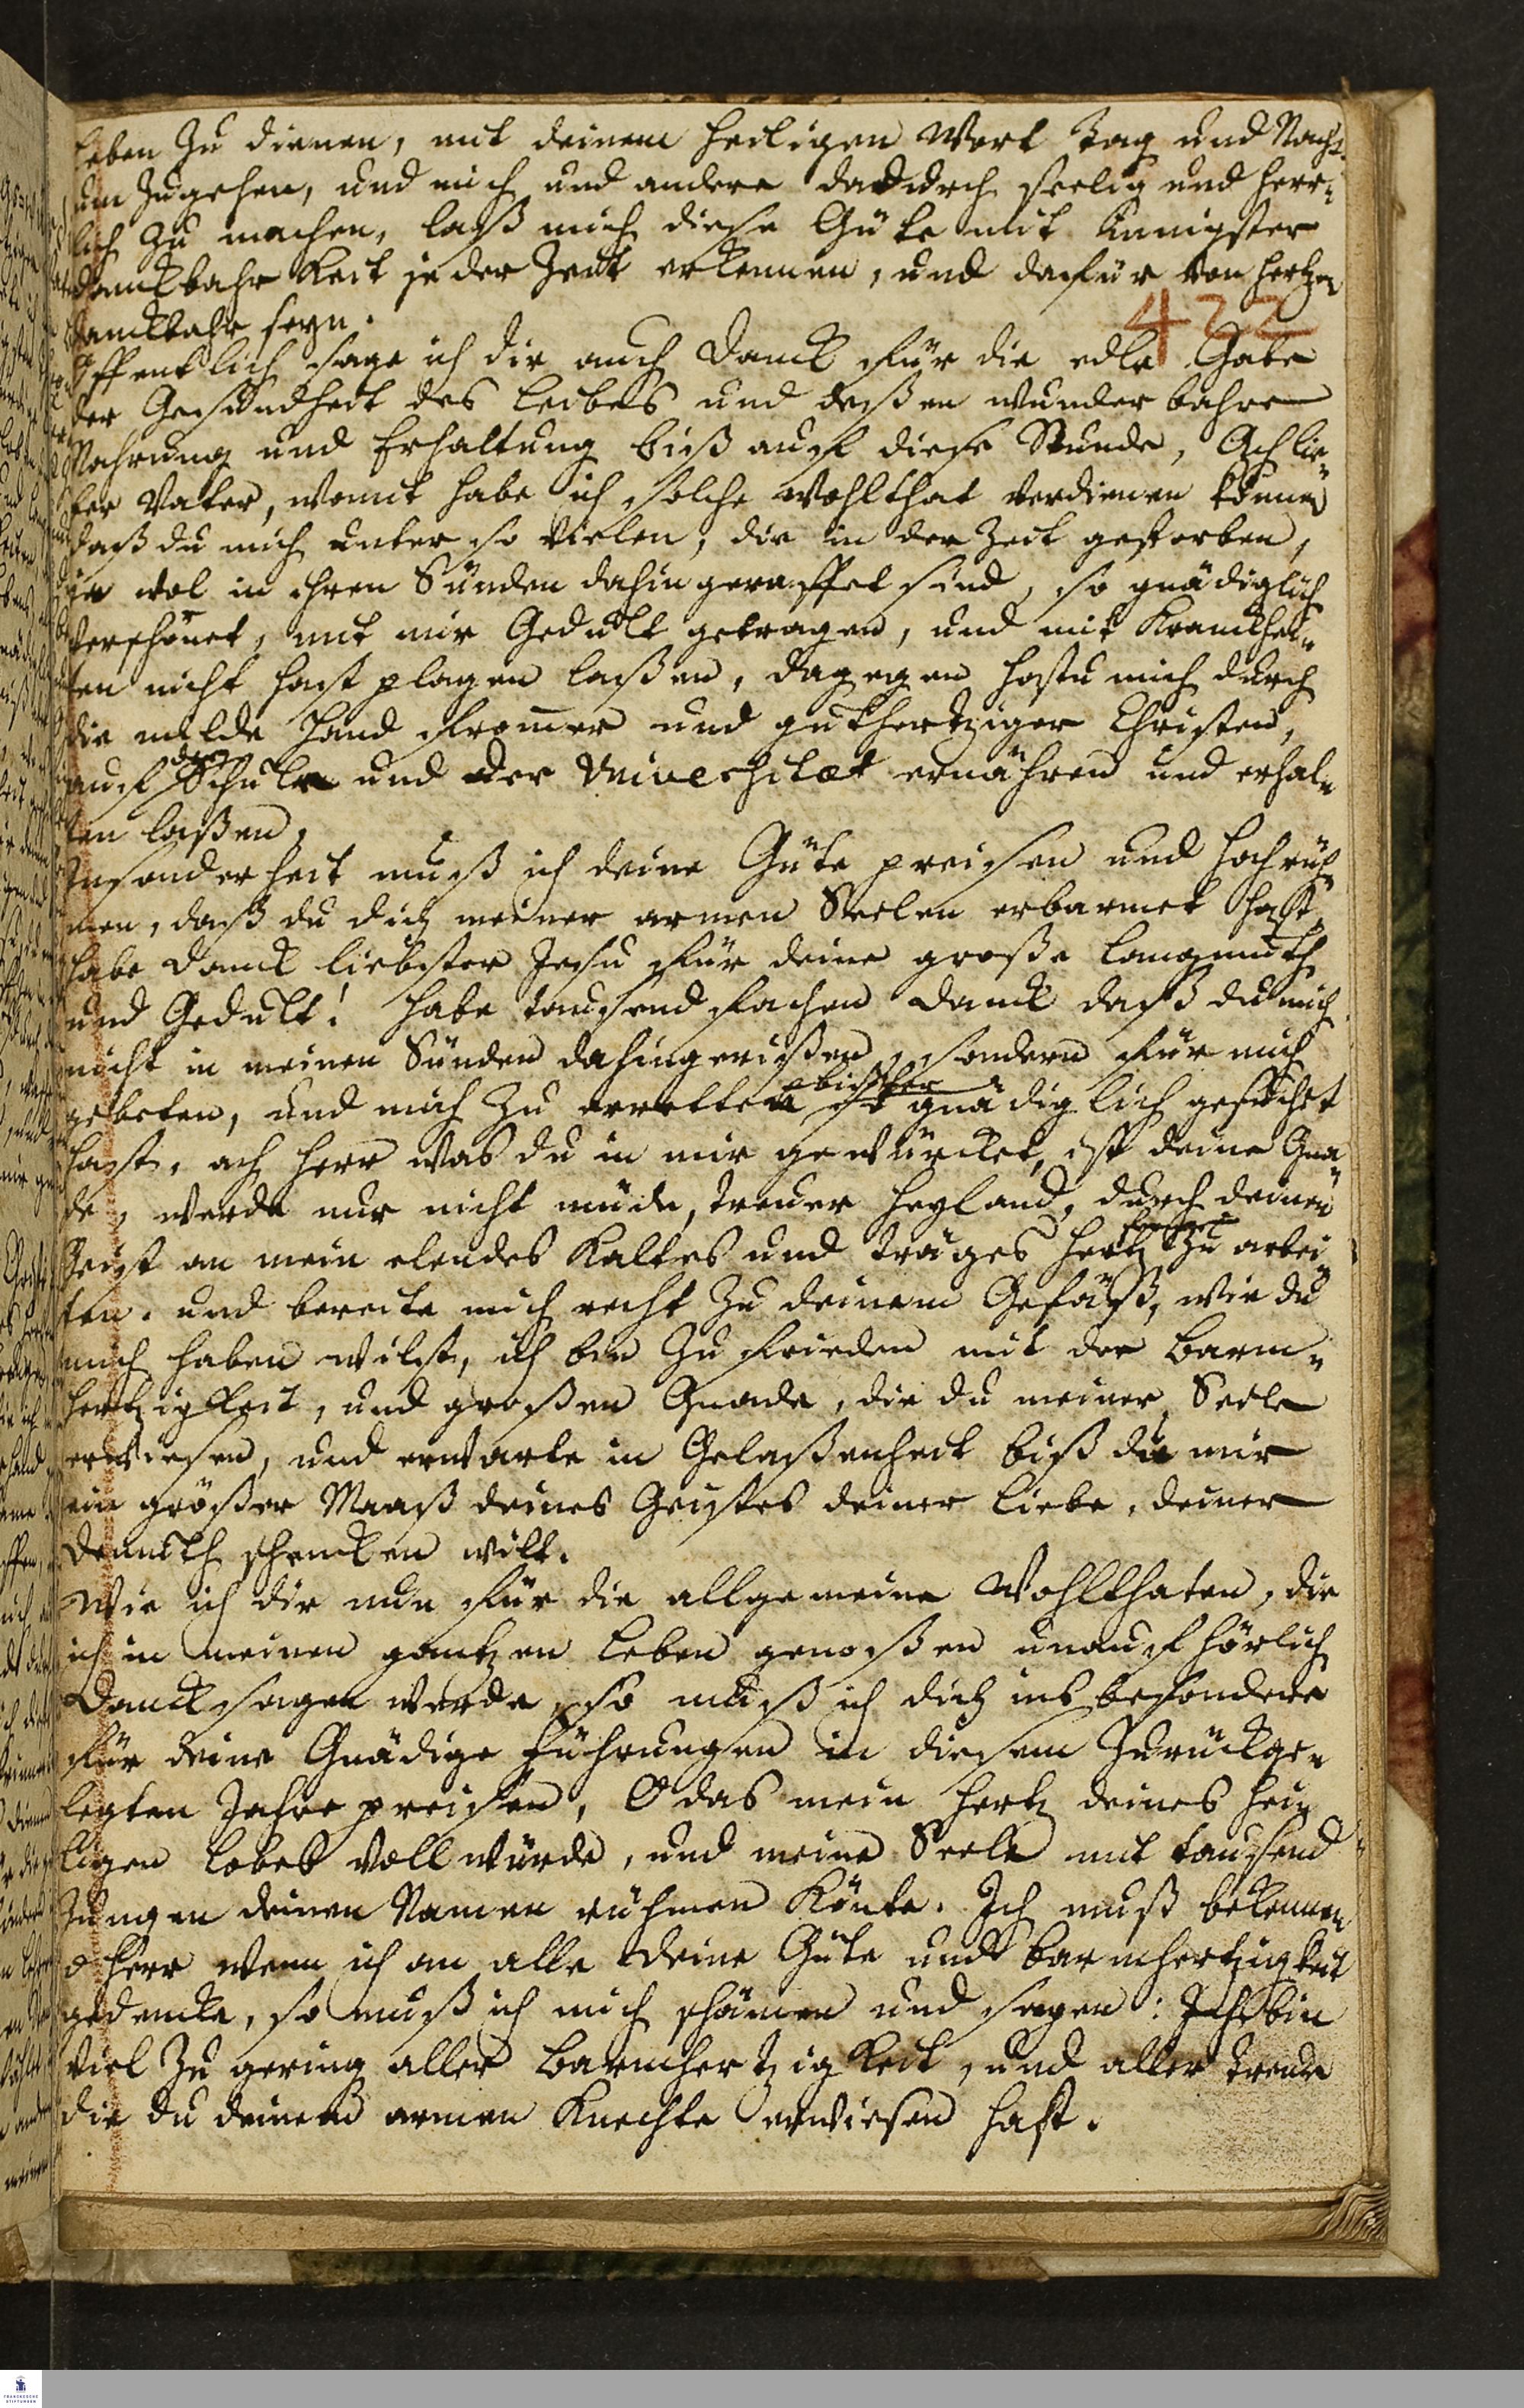 Leben zu dienen, mit deinem heiligen Wort Tag und Nacht
um zugehen, und mich und andere dadurch seelig und herr¬
lich zu machen, laß mich diese Güte mit innigster
Danckbahrkeit jederzeit erkennen, und dafür von Hertzen
danckbahr seyn.
422
Öffentlich sage ich dir auch Danck für die edle Gabe
der Gesundheit des Leibes und deßen wunderbahre
Nahrung und Erhaltung biß auf diese Stunde, Ach lie¬
ber Vater, womit habe ich solche Wohlthat verdienen können
daß du mich unter so vielen, die in der Zeit gestorben,
ja wol in ihren Sünden dahin geraffet sind, so gnädiglich
verschonet, mit mir Gedult getragen, und mit Kranckhei¬
ten nicht hast plagen laßen, dagegen hastu mich durch
die milde Hand fromer und guthertziger Christen,
auf der Schule und der Universitæt ernähren und erhal¬
ten laßen.
Insonderheit muß ich deine Güte preisen und hochrüh¬
men, daß du dich meiner armen Seelen erbarmet hast,
habe Danck liebster Jesu für deine große Langmuth
und Gedult! habe tausendfachen Danck daß du mich
nicht in meinen Sünden dahingerißen, sondern für mich
gebeten, und mich zu erretten bißher so gnädiglich gesuchet
hast, ach Herr was du in mir gewürcket, ist deine Gna¬
de, werde nur nicht müde, treuer Heyland, durch deinen
Geist an mein elendes kaltes und träges Hertz ferner zu arbei¬
ten. und bereite mich recht zu deinem Gefäß, wie du
mich haben wilst, ich bin zu frieden mit der Barm¬
hertzigkeit, und großen Gnade, die du meiner Seele
erwiesen, und erwarte in Gelaßenheit biß du mir
ein größer Maaß deines Geistes deiner Liebe, deiner
Demuth schencken wilt.
Wie ich dir nun für die allgemeine Wohlthaten, die
ich in meinen gantzen Leben genoßen unaufhörlich
Dancksagen werde, so muß ich dich ins besondere
für deine Gnädige Führungen in diesem Zurückge¬
legten Jahre preisen, O das mein Hertz deines hei¬
ligen Lobes voll würde, und meine Seele mit tausend
Zungen deinen Namen rühmen könte. Ich muß bekennen
o Herr wenn ich an alle deine Güte und Barmhertzigkeit
gedencke, so muß ich mich schämen und sagen: Ich bin
viel zu gering aller Barmhertzigkeit, und aller Treue
die du deinem armen Knechte erwiesen hast.
FRANCKESCHE
STIFTUNGEN